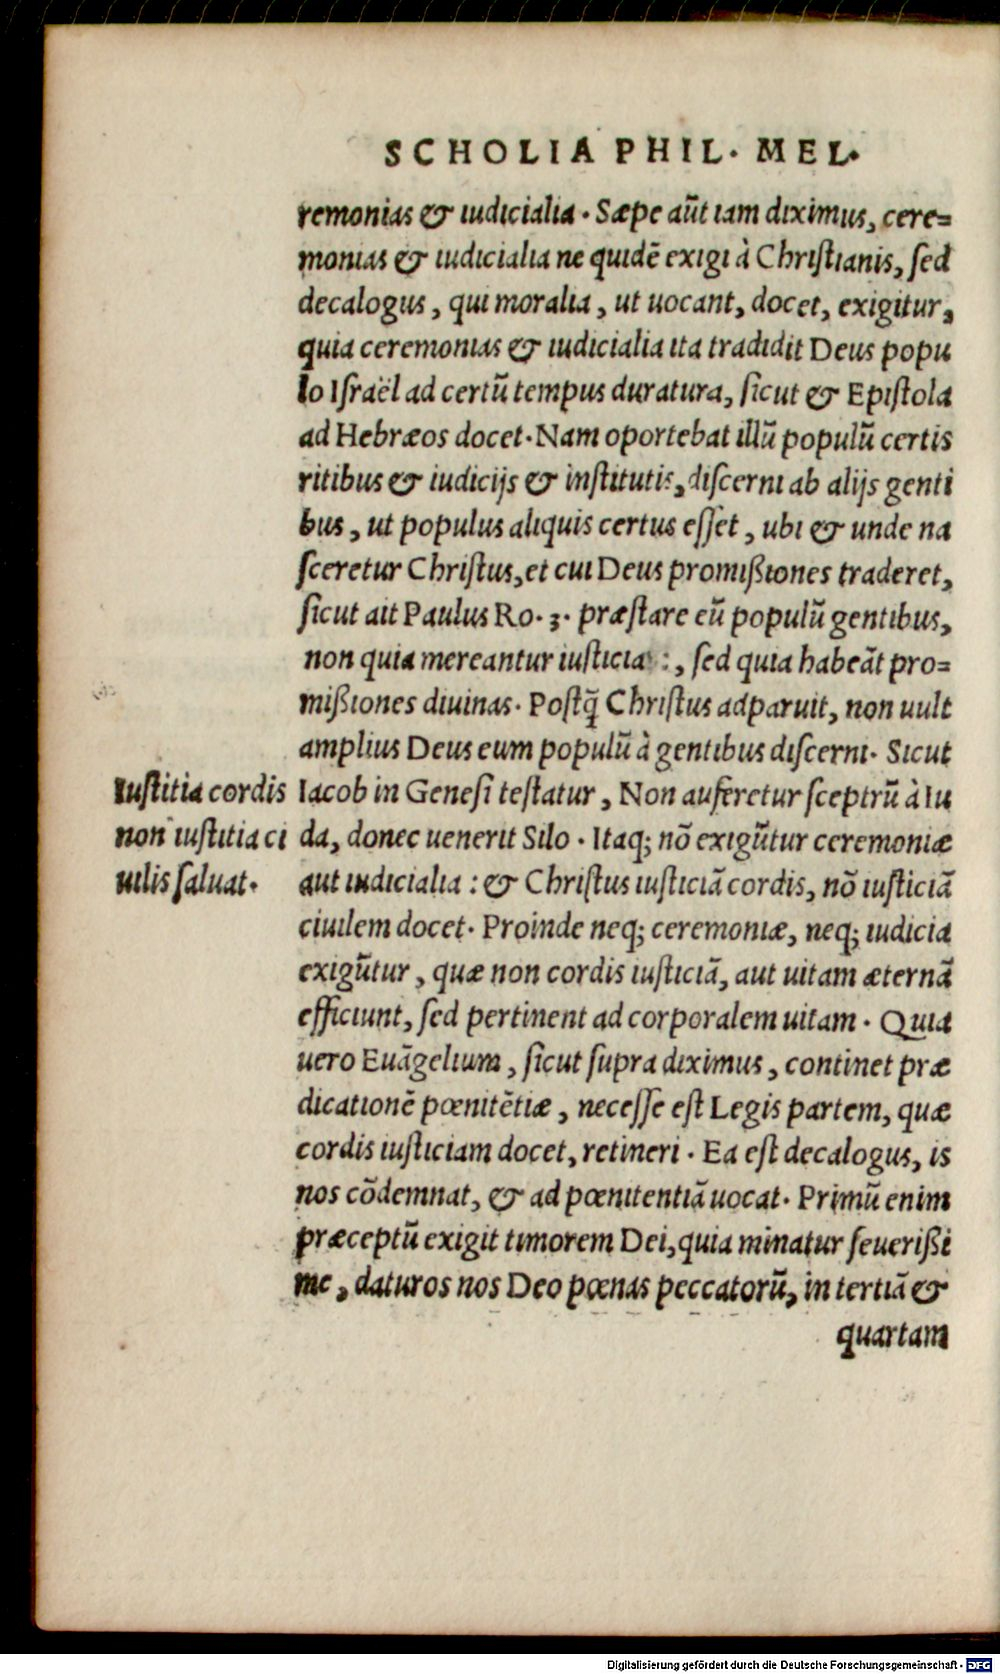 SCHOLIA PHIL. MEL.
remonias & iudicialia. Sæpe aũt iam diximus, cere=
monias & iudicialia ne quidẽ exigi à Christianis, sed
decalogus, qui moralia, ut uocant, docet, exigitur,
quia ceremonias & iudicialia ita tradidit Deus popu
lo Israël ad certũ tempus duratura, sicut & Epistola
ad Hebræos docet. Nam oportebat illũ populũ certis
ritibus & iudicijs & institutis, discerni ab alijs genti
bus, ut populus aliquis certus esset, ubi & unde na
sceretur Christus, et cui Deus promißiones traderet,
sicut ait Paulus Ro. 3. præstare eũ populũ gentibus,
non quia mereantur iusticia :, sed quia habeãt pro=
mißiones diuinas. Postq̃ Christus adparuit, non uult
amplius Deus eum populũ à gentibus discerni. Sicut
Iacob in Genesi testatur, Non auferetur sceptrũ à Iu
da, donec uenerit Silo. Itaq; nõ exigũtur ceremoniæ
aut iudicialia : & Christus iusticiã cordis, nõ iusticiã
ciuilem docet. Proinde neq; ceremoniæ, neq; iudicia
exigũtur, quæ non cordis iusticiã, aut uitam æternã
efficiunt, sed pertinent ad corporalem uitam. Quia
uero Euãgelium, sicut supra diximus, continet præ
dicationẽ pœnitẽtiæ, necesse est Legis partem, quæ
cordis iusticiam docet, retineri. Ea est decalogus, is
nos cõdemnat, & ad pœnitentiã uocat. Primũ enim
præceptũ exigit timorem Dei, quia minatur seuerißi
me, daturos nos Deo pœnas peccatorũ, in tertiã &
quartam
Iustitia cordis
non iustitia ci
uilis saluat.
Digitalisierung gefördert durch die Deutsche Forschungsgemeinschaft - DFG